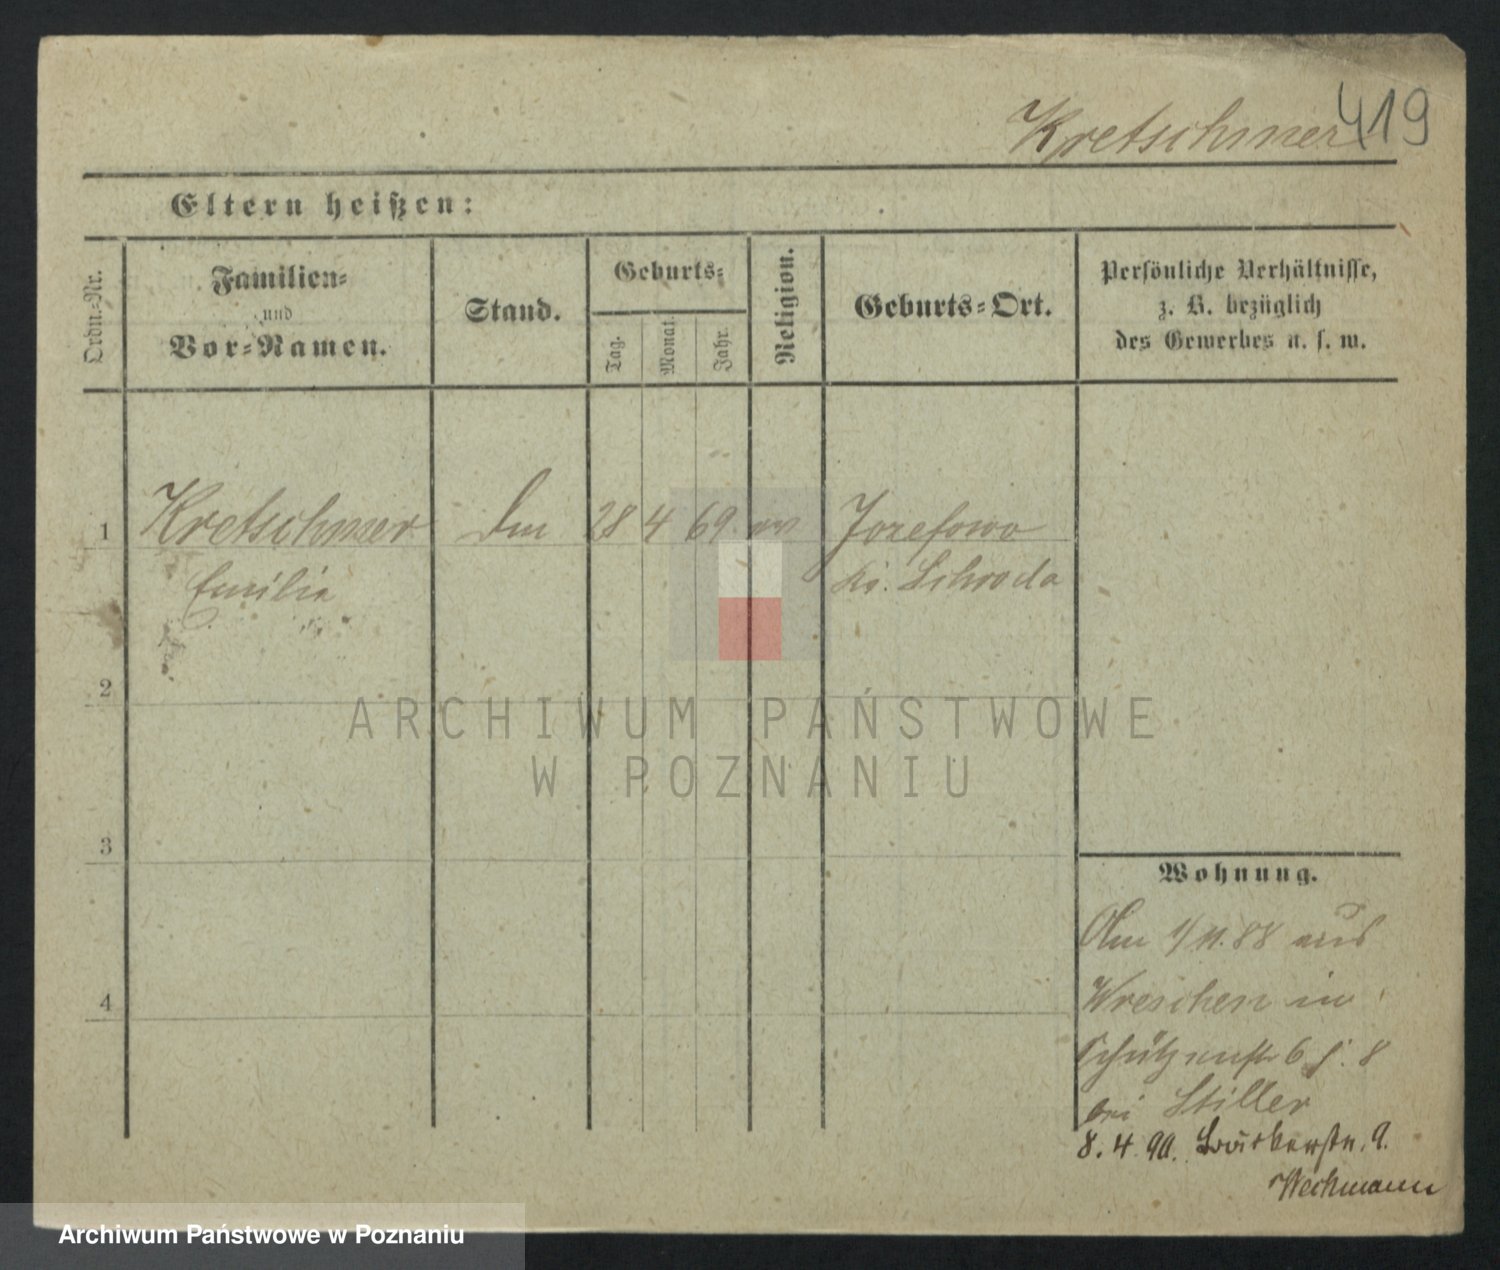 419
Kretschmer
Eltern heißen:
Ordn.-Nr.
Familien-
und
Vor-Namen.
Stand.
Geburts-
Tag.
Monat.
Jahr.
Religion.
Geburts-Ort.
Persönliche Verhältnisse,
z. B. bezüglich
des Gewerbes u. s. w.
1
Kretschmer
28 4 69
Jozefowo
Emilie
Kr. Schroda
2
ARCHIWUM PAŃSTWOWE
W POZNANIU
3
Wohnung.
Am 1/11.88 aus
4
Wreschen in
Schützenstr 6
bei Stiller
8.4.90.
Weichmann
Archiwum Państwowe w Poznaniu